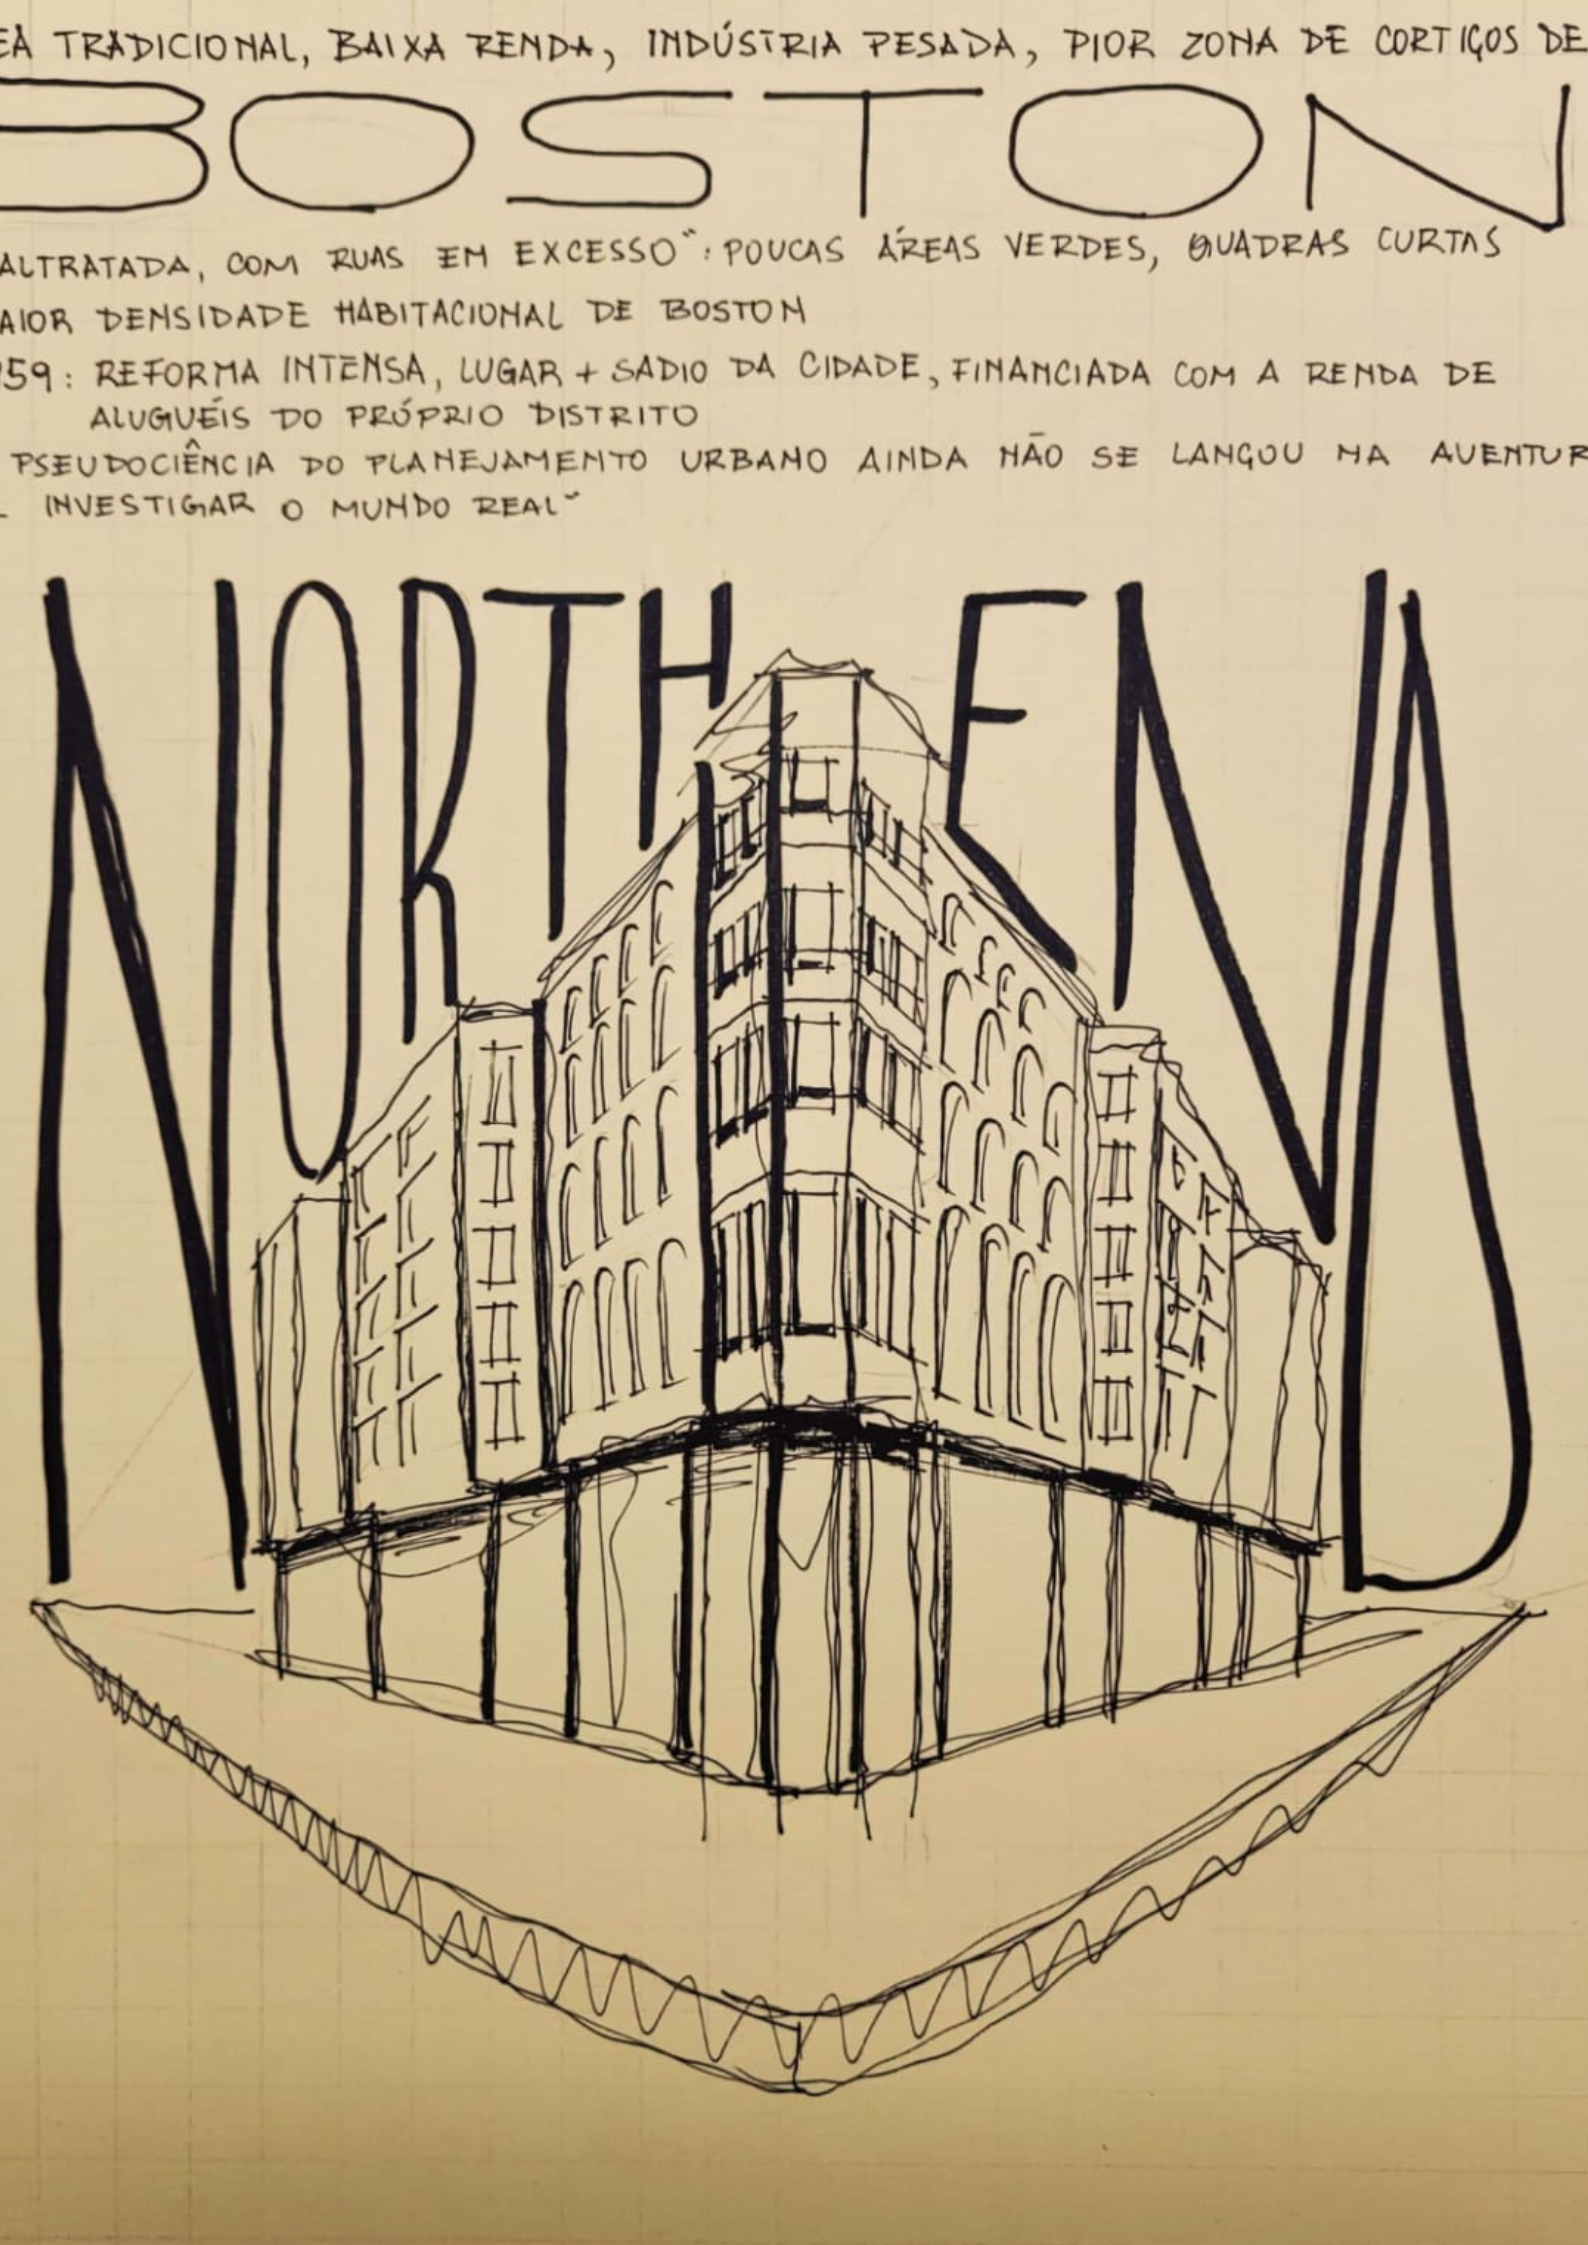 EA TRADICIONAL, BAIXA RENDA, INDÚSTRIA PESADA, PIOR ZONA DE CORTIÇOS DE
BOSTON
ALTRATADA, COM RUAS EM EXCESSO": POUCAS ÁREAS VERDES, QUADRAS CURTAS
AIOR DENSIDADE HABITACIONAL DE BOSTON
959: REFORMA INTENSA, LUGAR + SADIO DA CIDADE, FINANCIADA COM A RENDA DE
ALUGUÉIS DO PRÓPRIO DISTRITO
PSEUDOCIÊNCIA DO PLANEJAMENTO URBANO AINDA NÃO SE LANÇOU NA AVENTUR
INVESTIGAR O MUNDO REAL"
NORTH END